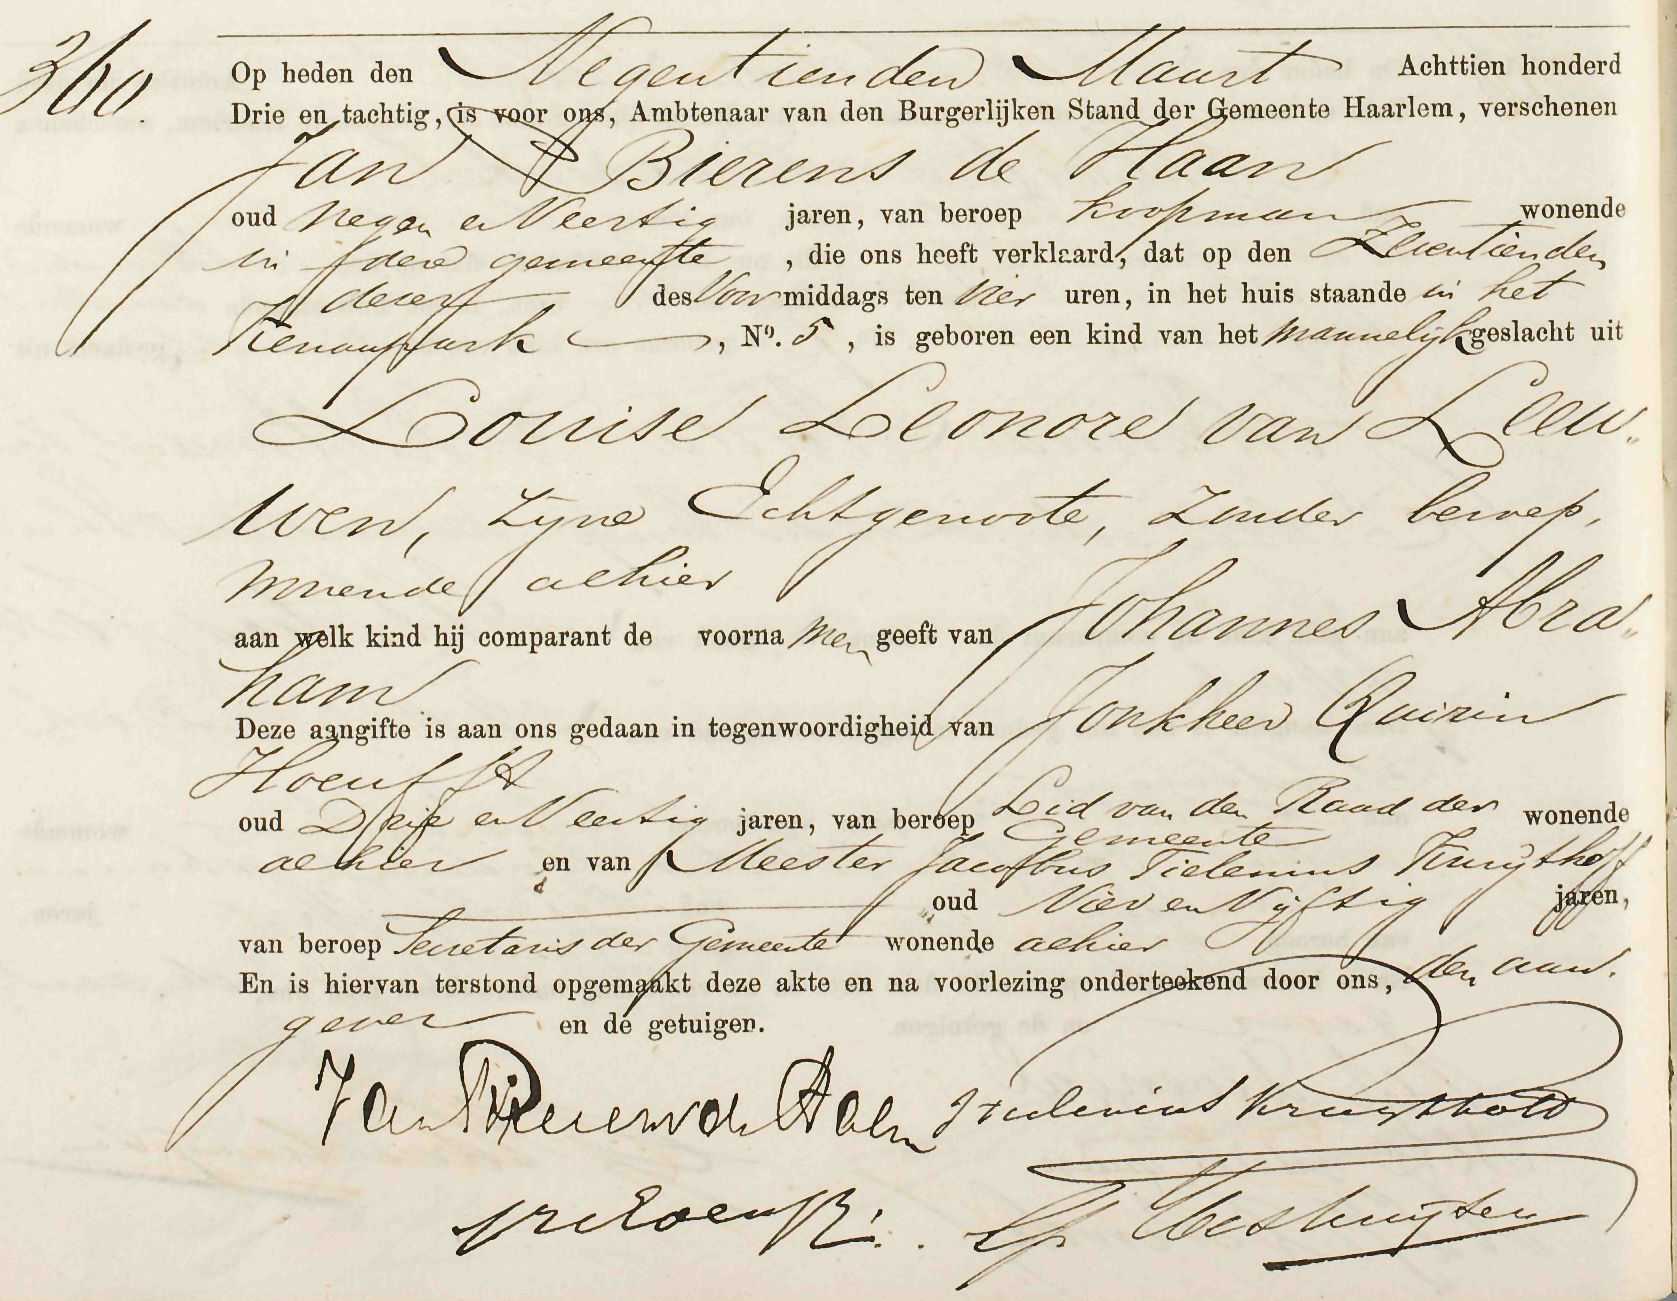 360.
Op heden den Negentienden Maart Achttien honderd
Drie en tachtig, is voor ons, Ambtenaar van den Burgerlijken Stand der Gemeente Haarlem, verschenen
Jan Bierens de Haan
oud negen en Veertig jaren, van beroep koopman wonende
in deze gemeente, die ons heeft verklaard, dat op den Zeventienden
dezer des Voormiddags ten vier uren, in het huis staande in het
Kenaupark, No. 5, is geboren een kind van het mannelijk geslacht uit
Louise Leonore van Leeu„
wen, zyne Echtgenoote, zonder beroep,
wonende alhier
aan welk kind hij comparant de voornamen geeft van Johannes Abra„
ham
Deze aangifte is aan ons gedaan in tegenwoordigheid van Jonkheer Quirin
Hoeufft
oud Drie en Veertig jaren, van beroep Lid van den Raad der Gemeente wonende
alhier en van Meester Jacobus Tielenius Kruythoff
oud Vier en Vijftig jaren,
van beroep Secretaris der Gemeente wonende alhier
En is hiervan terstond opgemaakt deze akte en na voorlezing onderteekend door ons, den aan„
gever en de getuigen.
Jan Bierens de Haan Tielenius Kruythoff
Hoeufft